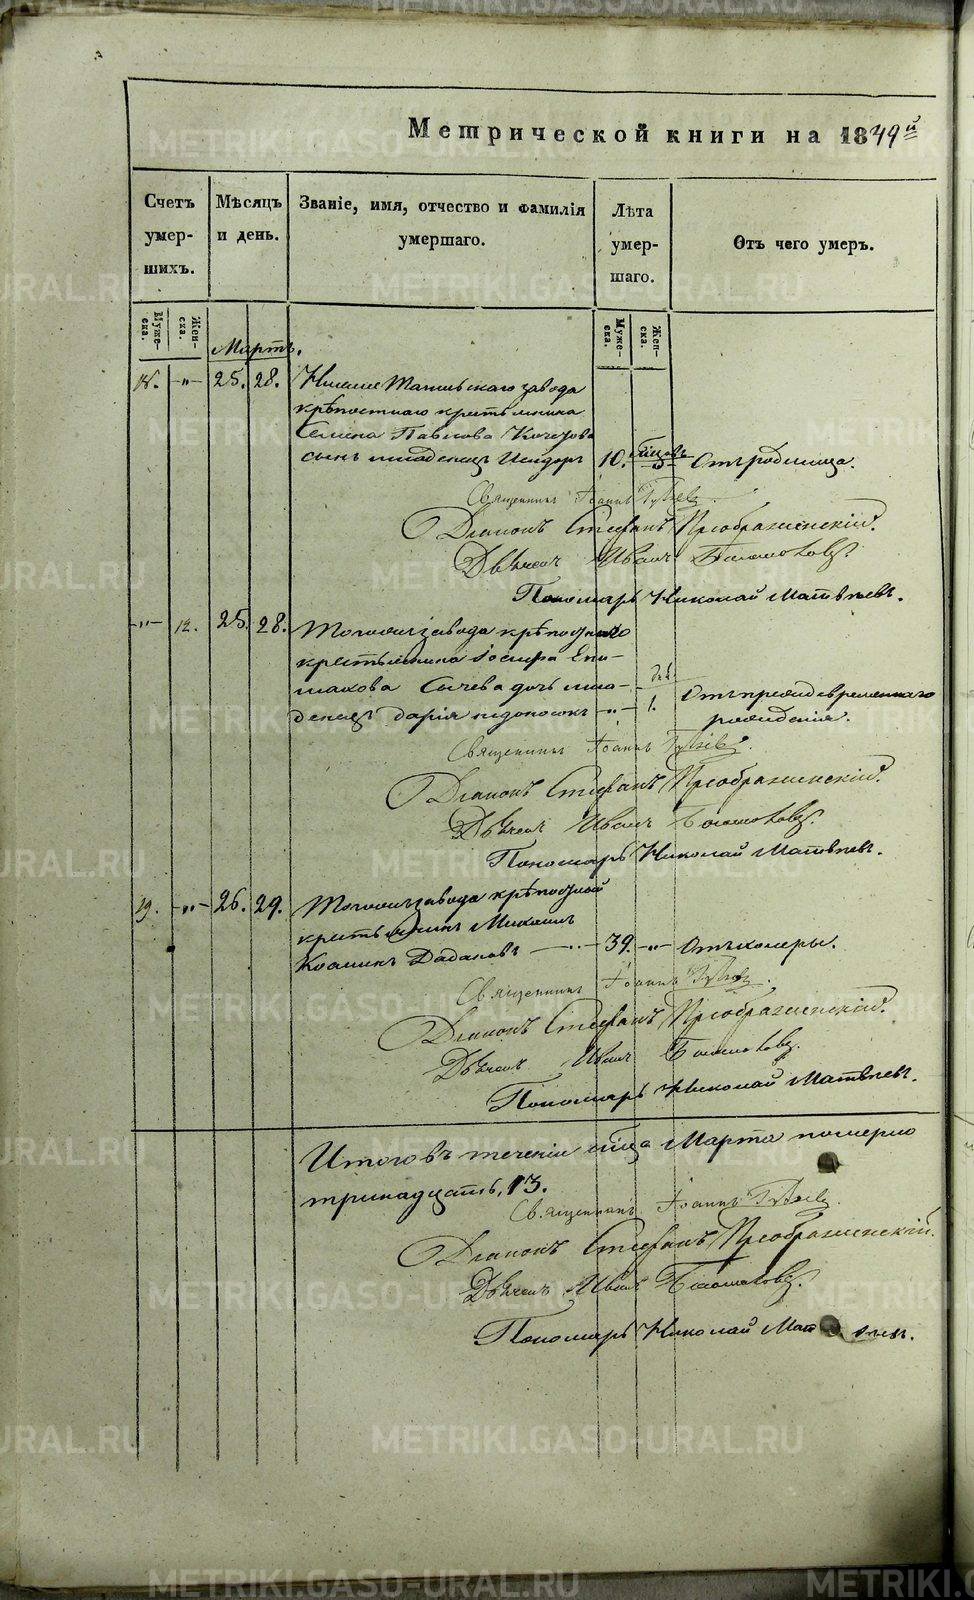 Метрической книги на 1849й
Счетъ умер- шихъ.
Мѣсяцъ и день.
Званіе, имя, отчество и фамилія умершаго.
Лѣта умер- шаго.
Отъ чего умеръ.
Муже- ска.
Жен- ска.
Муже- ска.
Жен- ска.
Мартъ.
18. —„— 25. 28. Нижне Тагильскаго завода
крѣпостнаго крестьянина
Семена Павлова Кочетова
сынъ младенецъ Исидоръ 10. мѣсцовъ Отъ родимца.
Священникъ Іоаннъ
Діаконъ Стефанъ Преображенскій.
Дьячекъ Иванъ
Пономарь Николай Матвѣевъ.
—„— 12. 25. 28. Тогоже завода крѣпостнаго
крестьянина Іосифа Епи-
махова Сычева дочь мла-
денецъ Дарія недоносокъ —„— 1. дн. Отъ преждевременнаго
рожденія.
Священникъ Іоаннъ
Діаконъ Стефанъ Преображенскій.
Дьячекъ Иванъ
Пономарь Николай Матвѣевъ.
19. —„— 26. 29. Тогоже завода крѣпостной
крестьянинъ Михаилъ
Козминъ 39. —„— Отъ холеры.
Священникъ Іоаннъ
Діаконъ Стефанъ Преображенскій.
Дьячекъ Иванъ
Пономарь Николай Матвѣевъ.
Итого въ теченіи мѣсца Марта померло
тринадцать, 13.
Священникъ Іоаннъ
Діаконъ Стефанъ Преображенскій.
Дьячекъ Иванъ
Пономарь Николай
METRIKI.GASO-URAL.RU